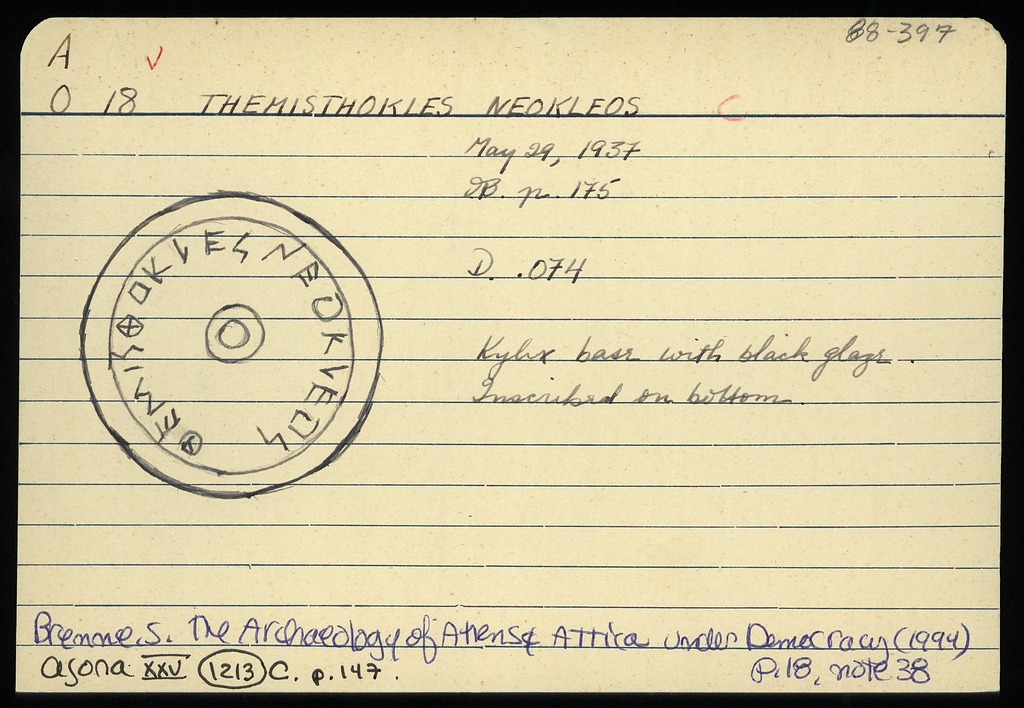 88-397
A
O 18 THEMISTHOKLES NEOKLEOS C
May 29, 1937
p. 175
D. .074
Kylix base with black glaze.
Inscribed on bottom.
ΘΕΜΙΣΘΟΚΛΕΣ ΝΕΟΚΛΕΟΣ
Brenne, S. The Archaeology of Athens & Attica under Democracy (1994)
p.18, note 38
Agora XXV 1213 C. p. 147.